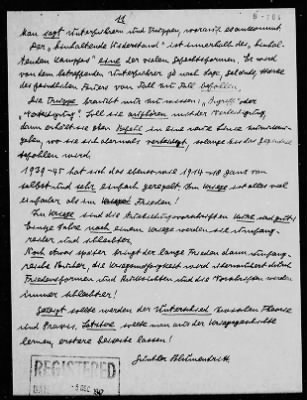 11
B-704
Man sagt Unterführern und Truppen, worauf es ankommt.
Der „hinhaltende Widerstand" ist innerhalb des „hinhal-
tenden Kampfes" eine der vielen Gefechtsformen. Er wird
von dem betreffenden Unterführer je nach Lage, Gelände, Stärke
des feindlichen Feuers von Fall zu Fall befohlen.
Die Truppe braucht nur zu wissen: „Angriff" oder
„Verteidigung". Soll sie aufhören mit der Verteidigung,
dann erhält sie den Befehl in eine neue Linie zurückzu-
gehen, wo sie sich abermals verteidigt, solange bis das Gegenteil
befohlen wird.
1939-45 hat sich das ebenso wie 1914-18 ganz von
selbst und sehr einfach geregelt. Im Kriege ist alles viel
einfacher als im Frieden!
Im Kriege sind die Ausbildungsvorschriften kurz und gut!
Einige Jahre nach einem Kriege werden sie umfang-
reicher und schlechter.
Noch etwas später bringt der lange Frieden dann umfang-
reiche Bücher, die Kriegsmäßigkeit wird überwuchert durch
Friedensformen und Rücksichten und die Vorschriften werden
immer schlechter!
Gezeigt sollte werden der Unterschied zwischen Theorie
und Praxis. Letztere sollte man aus der Kriegsgeschichte
lernen, erstere beiseite lassen!
Günther Blumentritt
REGISTERED
DEC 1947